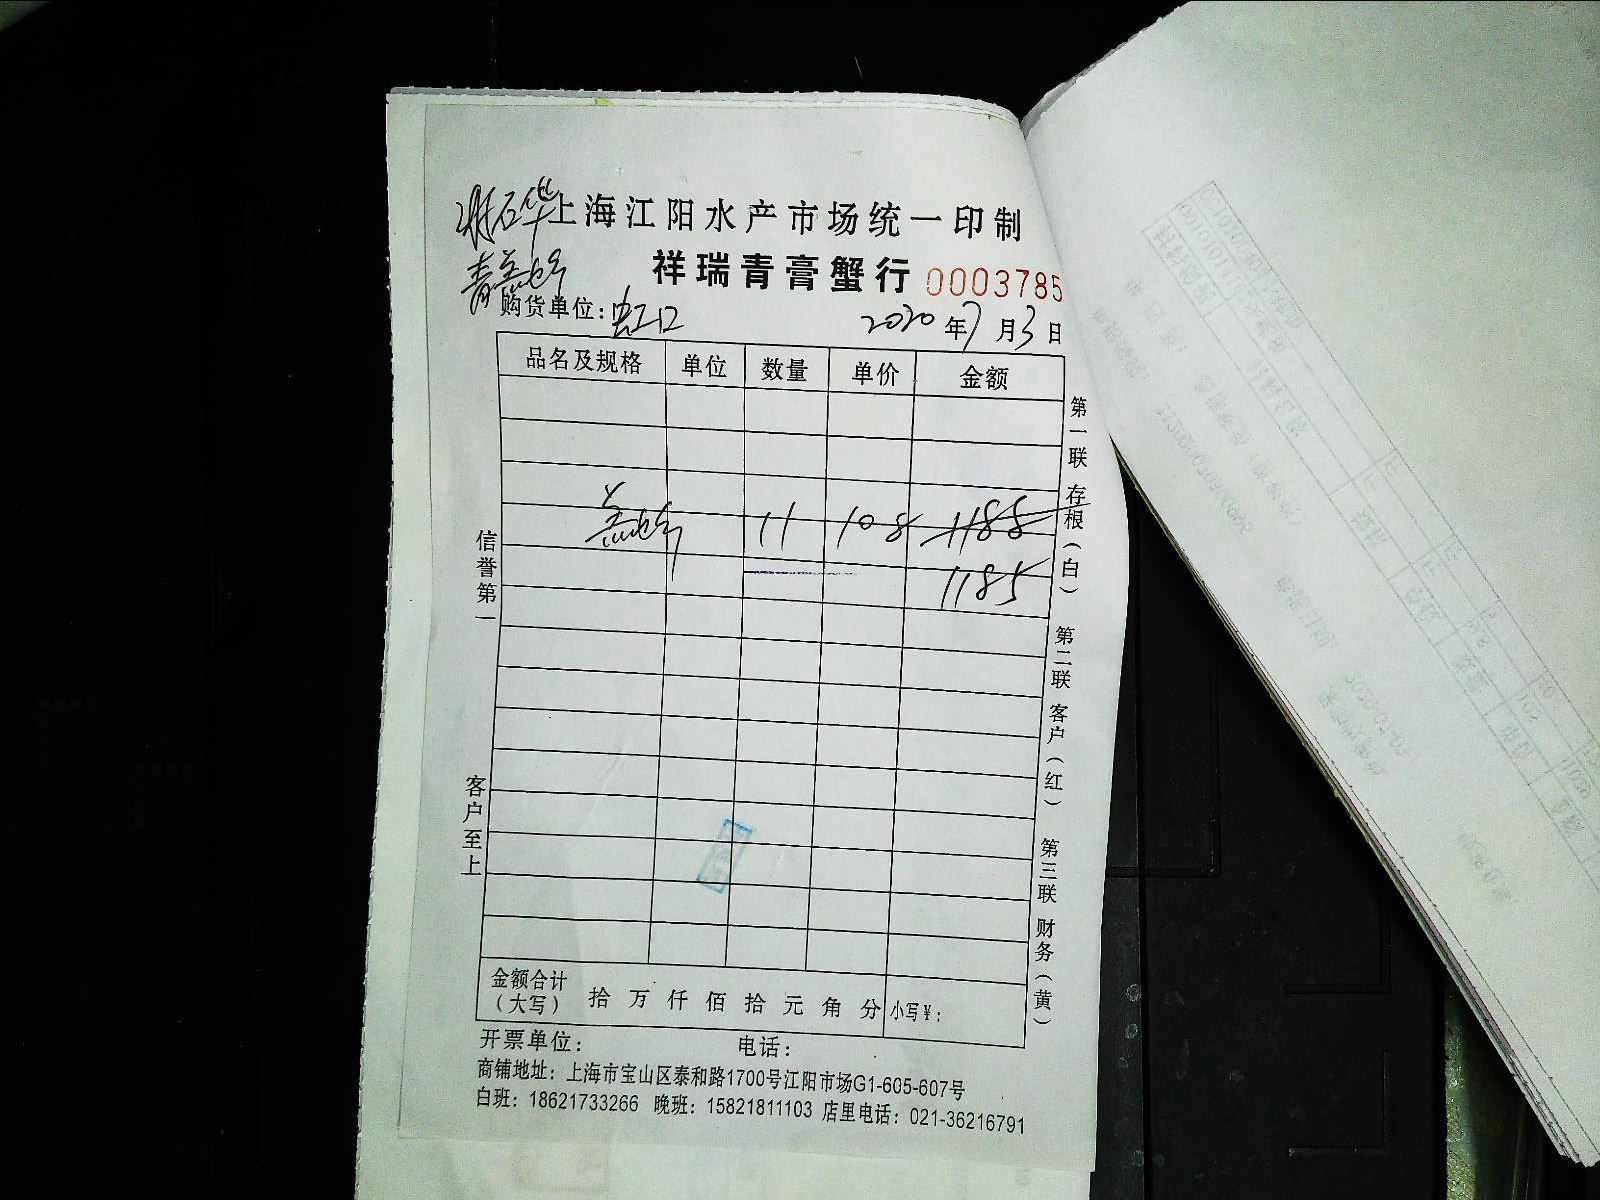 上海江阳水产市场统一印制
祥瑞青膏蟹行 0003785
购货单位：虹口 2020年7月3日
品名及规格 单位 数量 单价 金额
11 108 1188
1185
信誉第一
客户至上
第一联 存根（白）
第二联 客户（红）
第三联 财务（黄）
金额合计
（大写） 拾 万 仟 佰 拾 元 角 分 小写￥：
开票单位： 电话：
商铺地址：上海市宝山区泰和路1700号江阳市场G1-605-607号
白班：18621733266 晚班：15821811103 店里电话：021-36216791